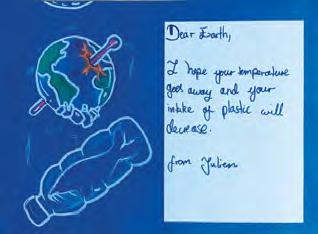 Dear Earth,
I hope your temperature
goes away and your
intake of plastic will
decrease.
from Julien